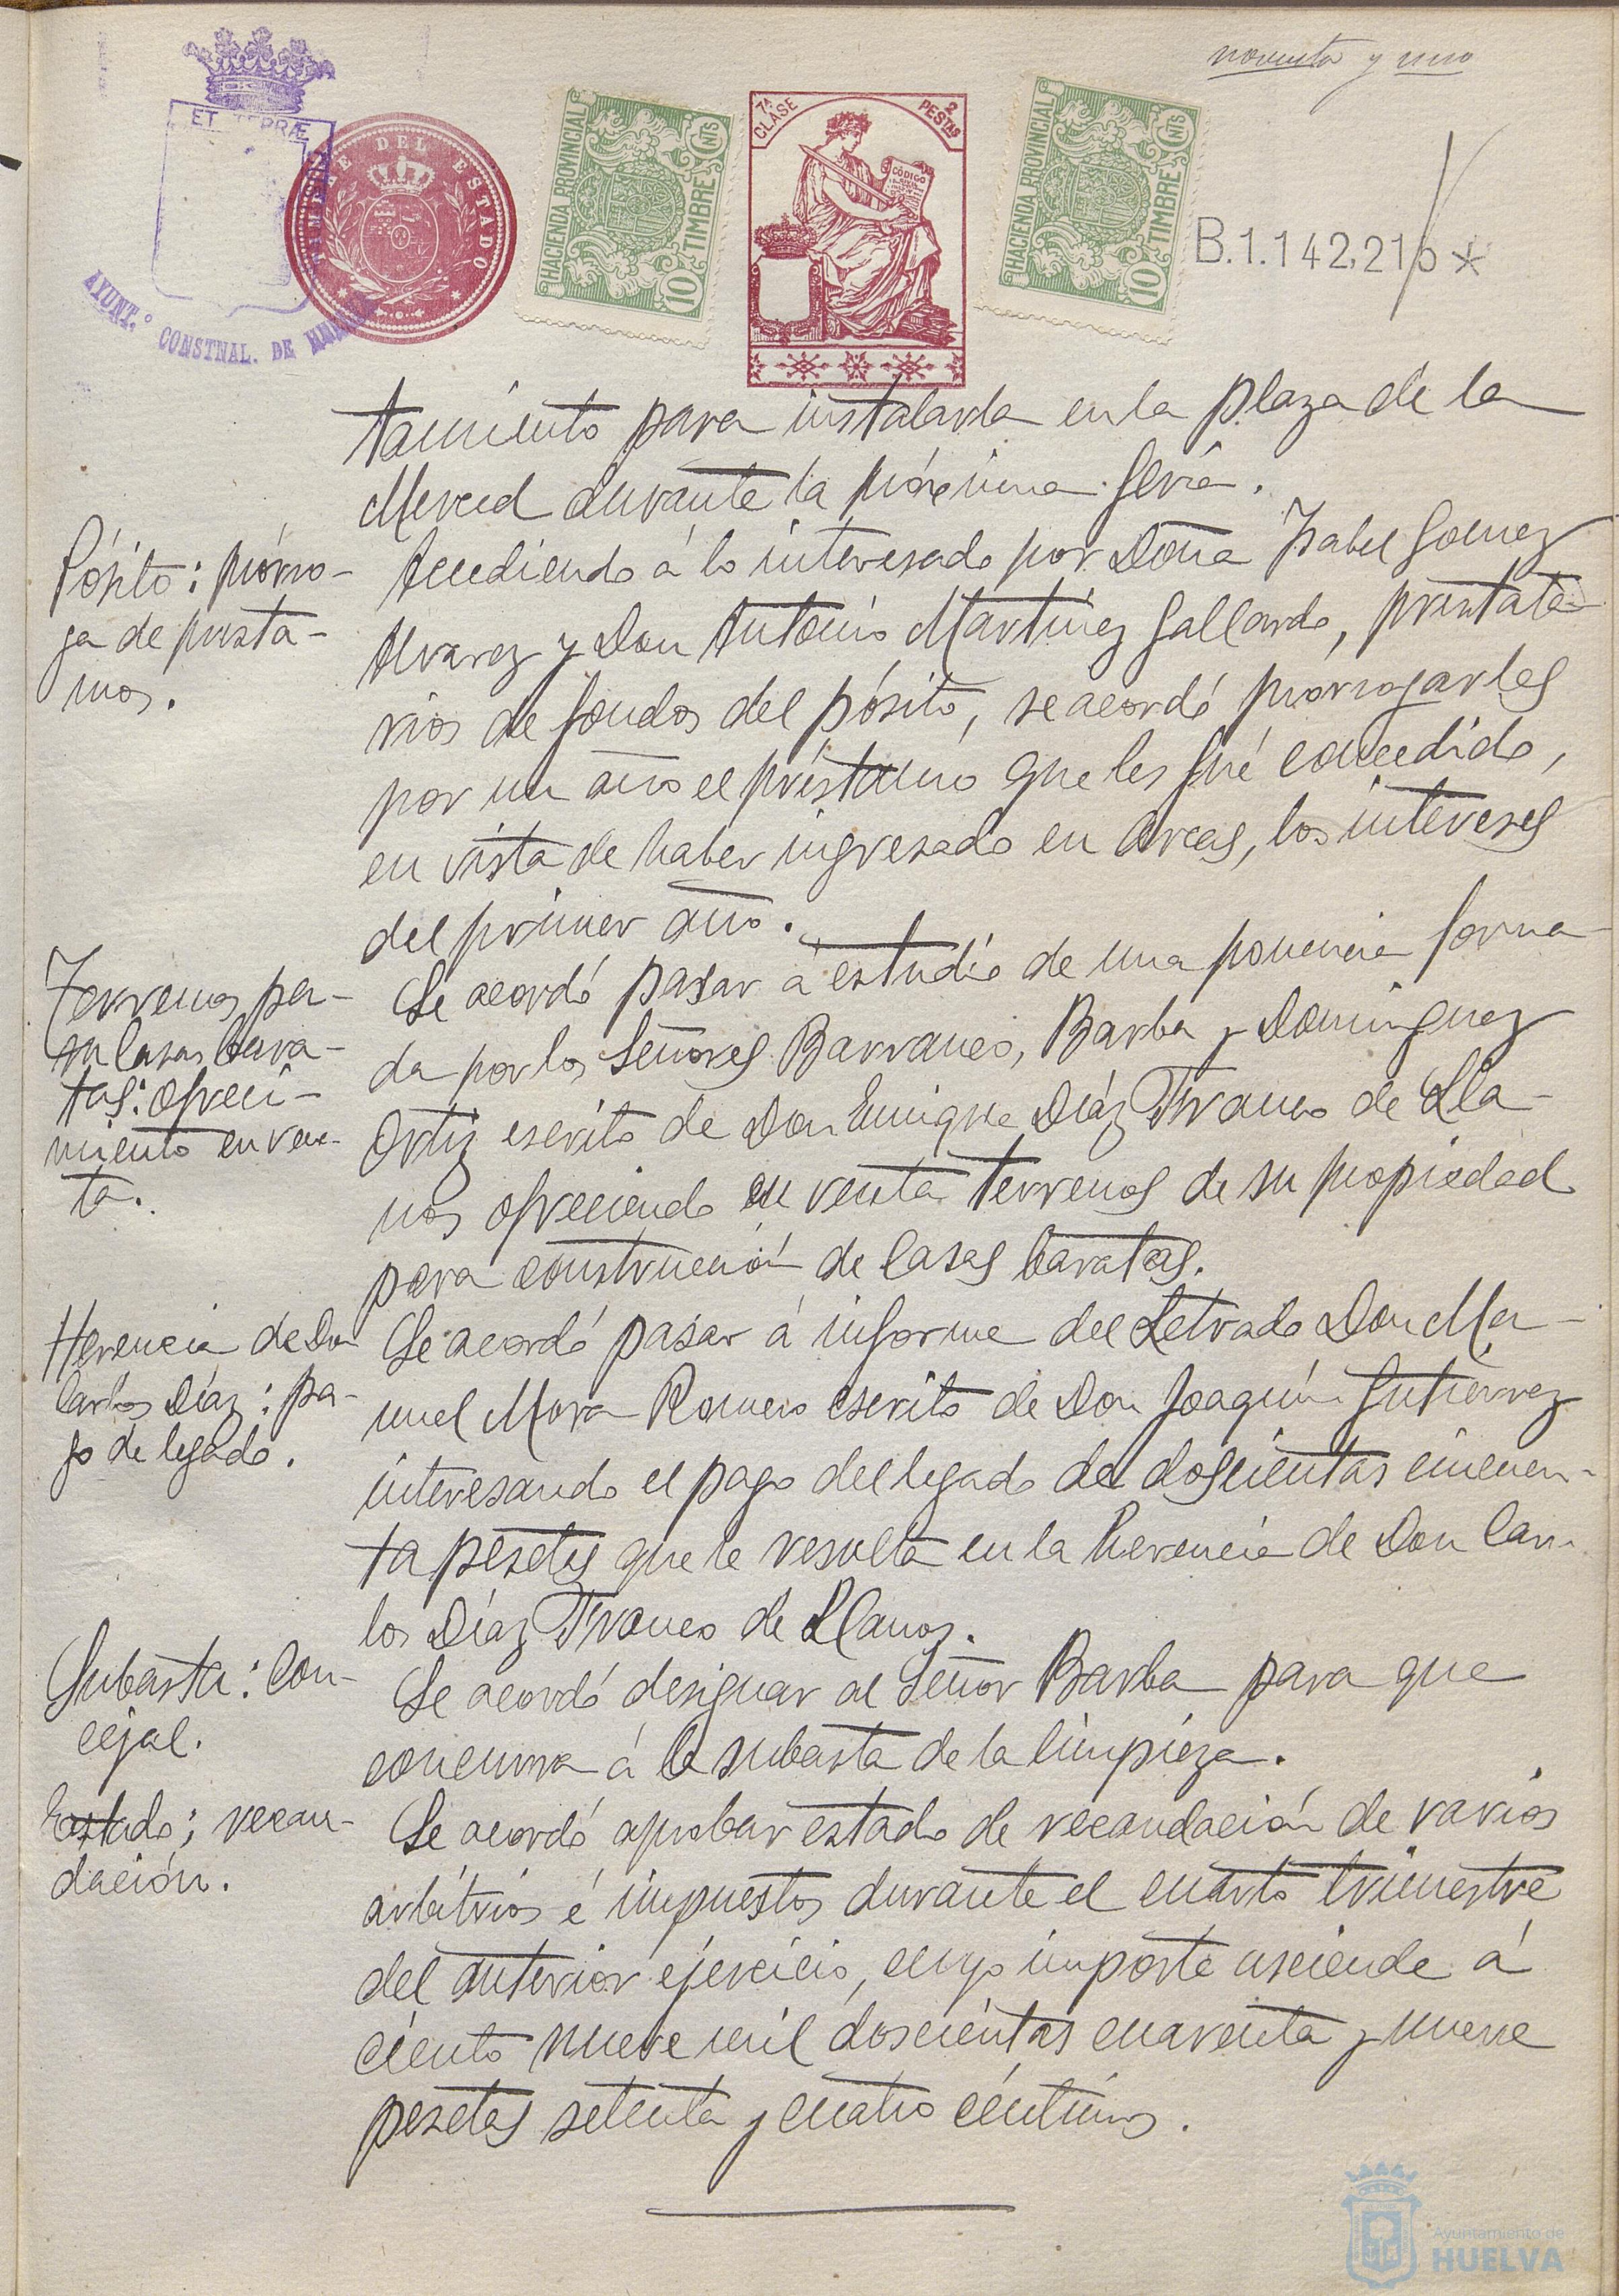 noventa y uno
ET TERRÆ
TIMBRE DEL ESTADO
AYUNT.º CONSTNAL. DE HUELVA
HACIENDA PROVINCIAL
10 CNTS
TIMBRE
7ª CLASE
2 PESTAS
CÓDIGO
HACIENDA PROVINCIAL
10 CNTS
TIMBRE
B.1.142,216 *
tamiento para instalarla en la plaza de la
Merced durante la próxima feria.
Pósito: prórro-
ga de presta-
mos.
Accediendo á lo interesado por Doña Isabel Gomez
Alvarez y Don Antonio Martínez Gallardo, prestata-
rios de fondos del pósito, se acordó prorrogarles
por un año el préstamo que les fué concedido,
en vista de haber ingresado en Arcas, los intereses
del primer año.
Terrenos pa-
ra Casas bara-
tas: ofreci-
miento en ven-
ta.
Se acordó pasar á estudio de una ponencia forma-
da por los Señores Barranco, Barba y Dominguez
Ortiz escrito de Don Enrique Díaz Franco de Lla-
nos ofreciendo en venta terrenos de su propiedad
para construcción de Casas baratas.
Herencia de Don
Carlos Díaz: pa-
go de legado.
Se acordó pasar á informe del Letrado Don Ma-
nuel Mora Romero escrito de Don Joaquín Gutierrez
interesando el pago del legado de doscientas cincuen-
ta pesetas que le resulta en la herencia de Don Car-
los Díaz Franco de Llanos.
Subasta: Con-
cejal.
Se acordó designar al Señor Barba para que
concurra á la subasta de la limpieza.
Estado; recau-
dación.
Se acordó aprobar estado de recaudación de varios
arbitrios é impuestos durante el cuarto trimestre
del anterior ejercicio, cuyo importe asciende á
ciento nueve mil doscientas cuarenta y nueve
pesetas setenta y cuatro céntimos.
Ayuntamiento de
HUELVA